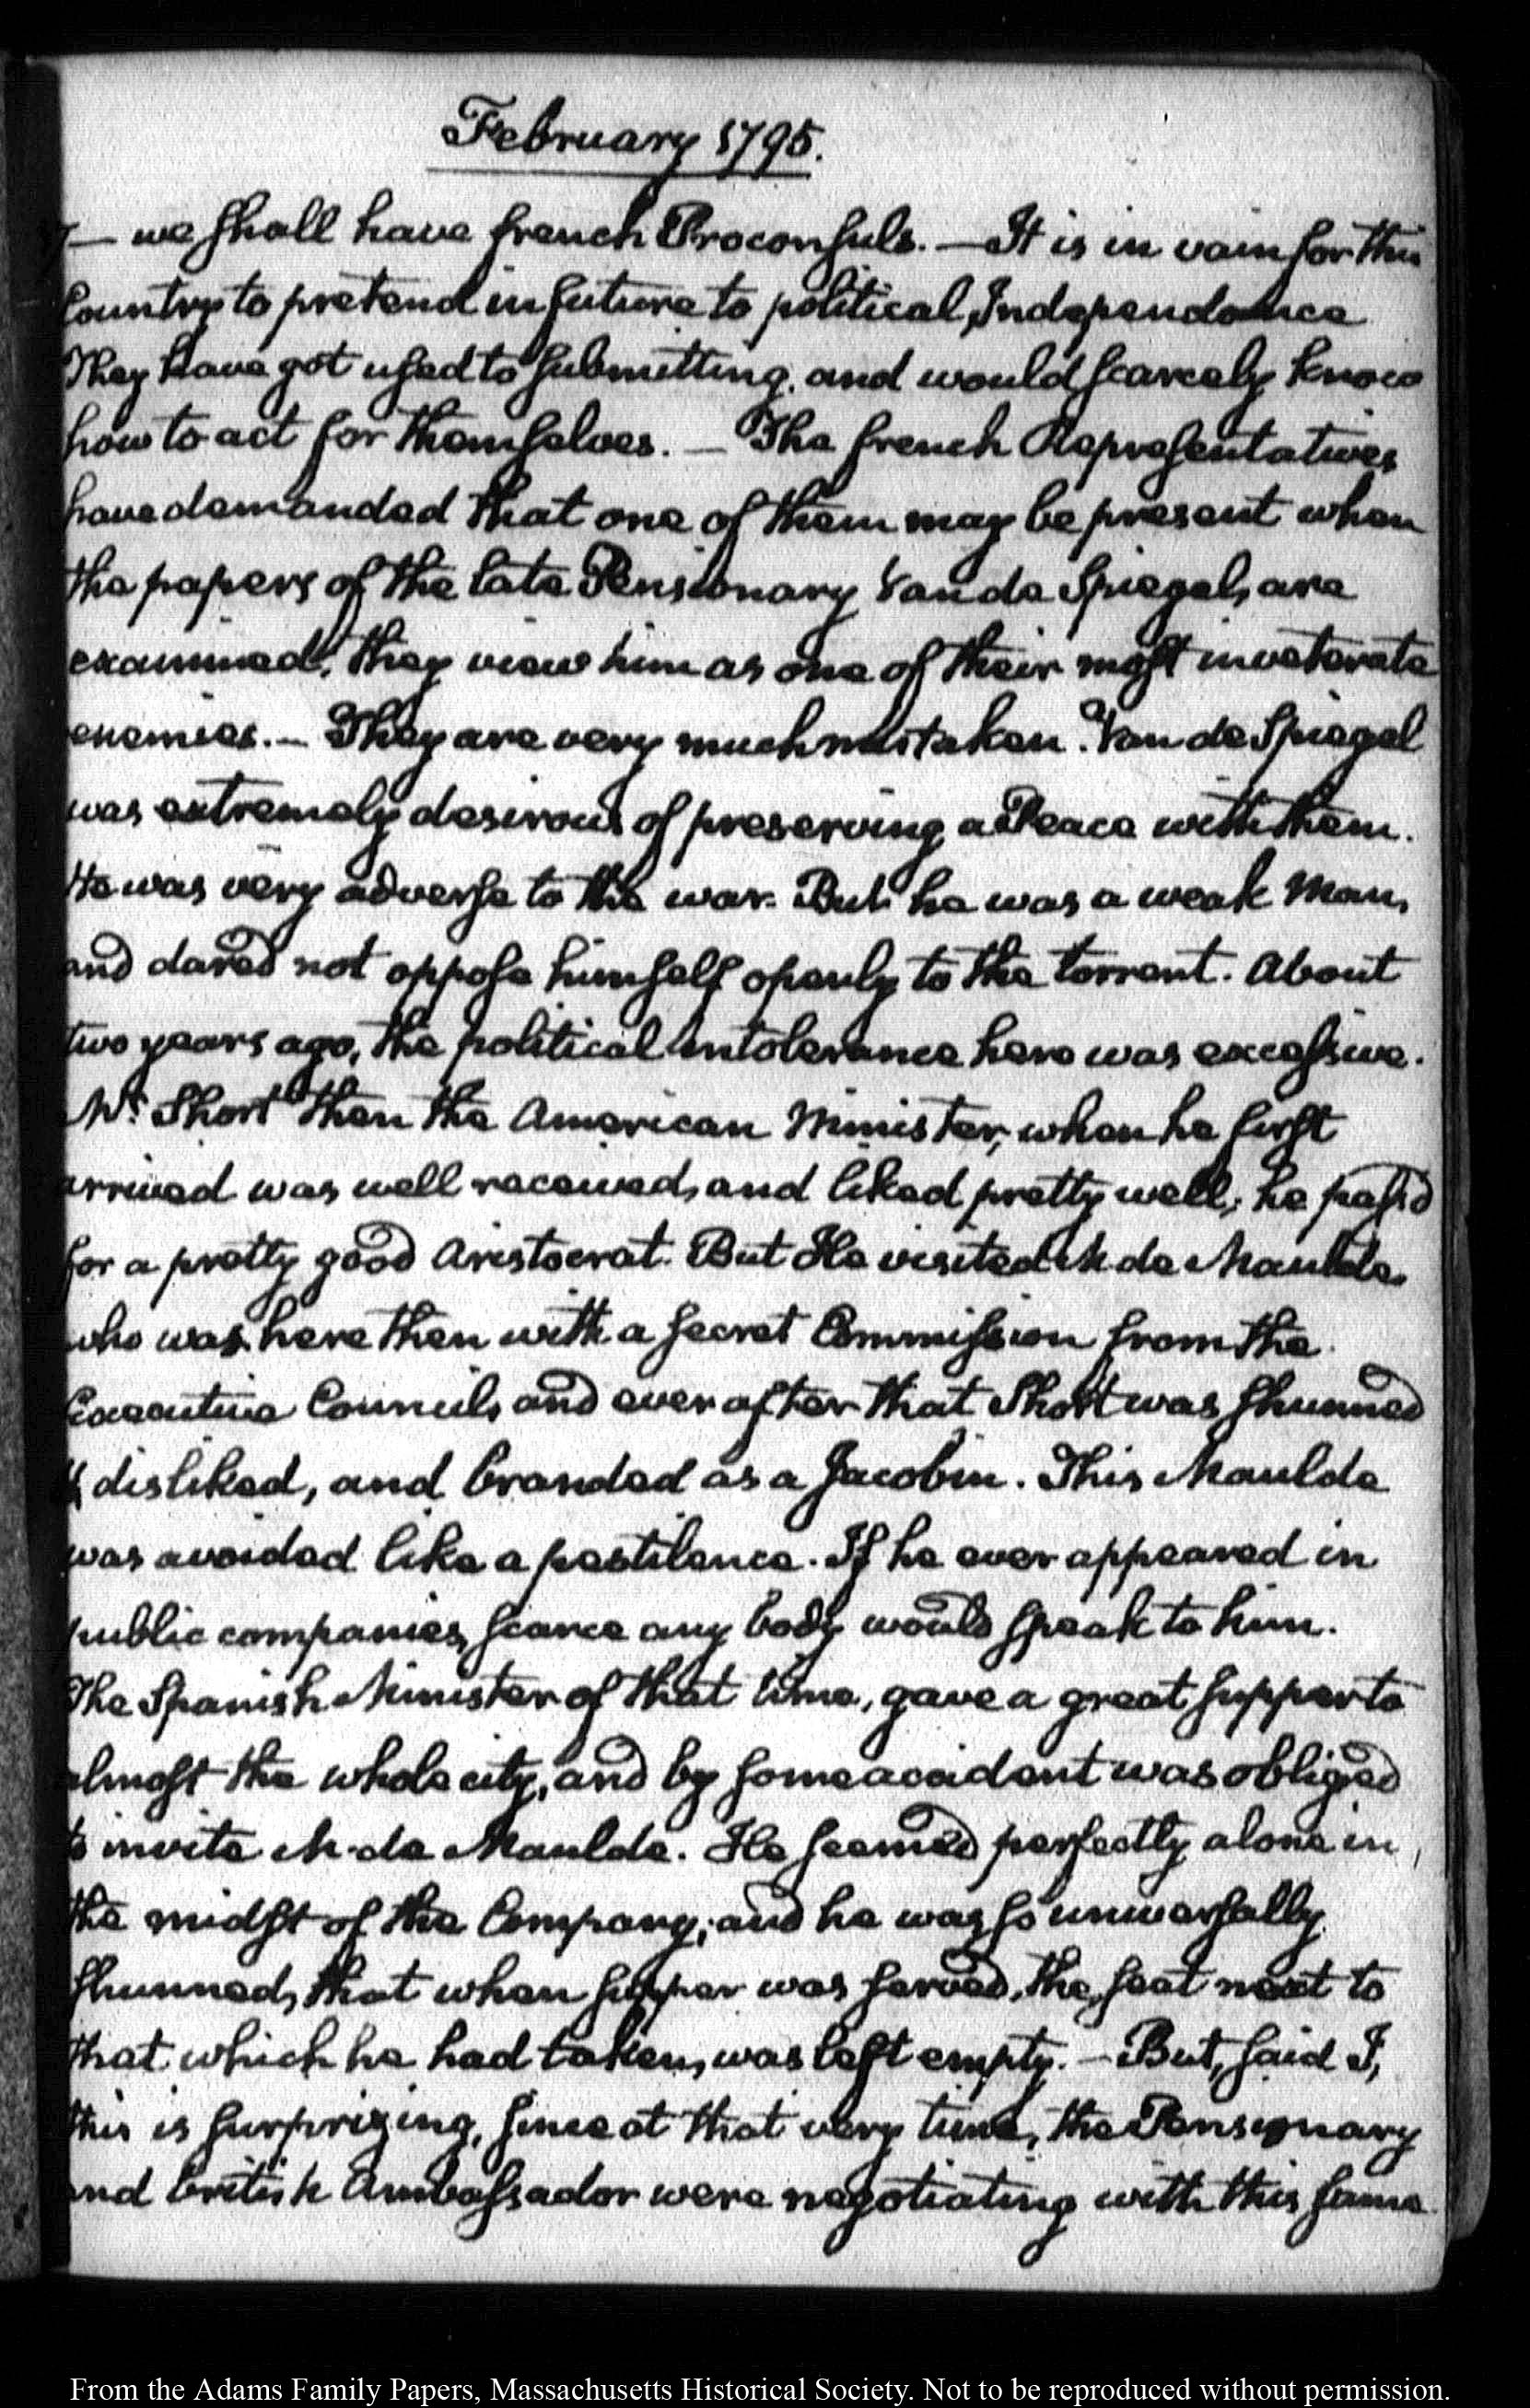 February 1795.
7 — we shall have french Proconsuls. — It is in vain for this
Country to pretend in future to political, Independance
They have got used to submitting, and would scarcely know
how to act for themselves. — The french Representatives
have demanded that one of them may be present when
the papers of the late Pensionary Van de Spiegel, are
examined, they view him as one of their most inveterate
enemies. — They are very much mistaken. Van de Spiegel
was extremely desirous of preserving a Peace with them.
He was very adverse to the war. But he was a weak Man,
and dared not oppose himself openly to the torrent. About
two years ago, the political intolerance here was excessive.
Mr. Short then the American Minister, when he first
arrived was well received, and liked pretty well; he pass'd
for a pretty good Aristocrat. But He visited M. de Maulde,
who was here then with a secret Commission from the
Executive Council, and ever after that Short was shunned
& disliked, and branded as a Jacobin. This Maulde
was avoided like a pestilence. If he ever appeared in
public companies, scarce any body would speak to him.
The Spanish Minister of that time, gave a great supper to
almost the whole city, and by some accident was obliged
to invite M. de Maulde. He seemed perfectly alone in
the midst of the Company; and he was so universally
shunned, that when supper was served, the seat next to
that which he had taken, was left empty. — But, said I,
this is surprizing, since at that very time, the Pensionary
and british Ambassador were negotiating with this same
From the Adams Family Papers, Massachusetts Historical Society. Not to be reproduced without permission.